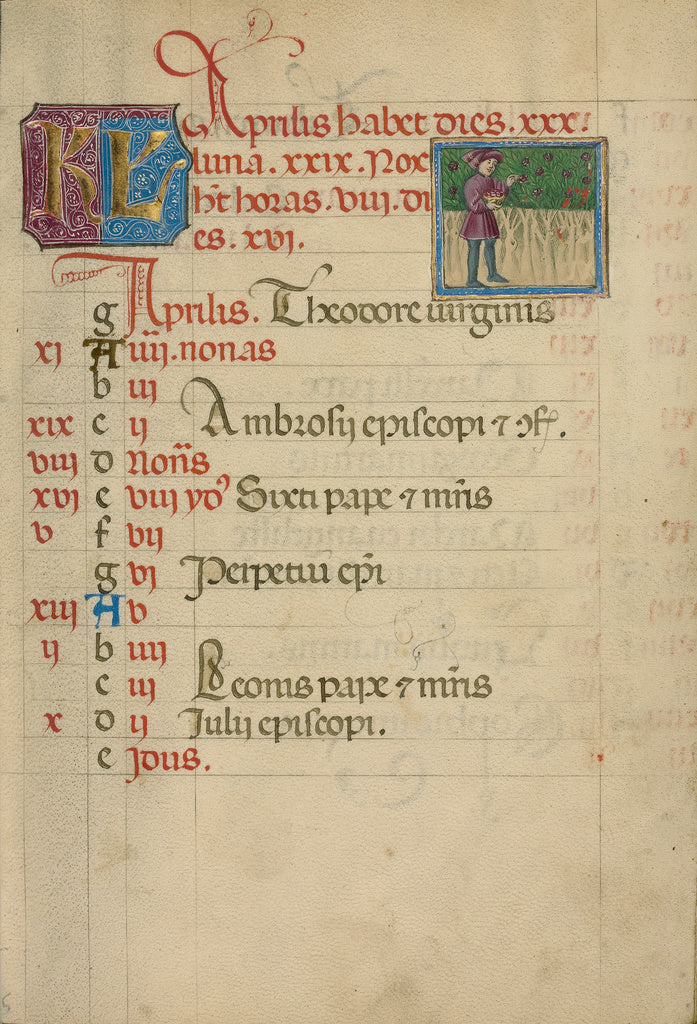 KL Aprilis habet dies .xxx.
luna .xxix. Nox
hñt horas .viii. di
es. xvi.
g Aprilis. Theodore uirginis
xi A iiij.nonas
b iij
xix c ij Ambrosij episcopi ⁊ ɔff.
viij d Noñs
xvi e viij ydꝰ Sixti pape ⁊ mr̃is
v f vij
g vi Perpetui ep̃i
xiij A v
ij b iiij
c iij Leonis pape ⁊ mr̃is
x d ij Julij episcopi.
e Jdus.